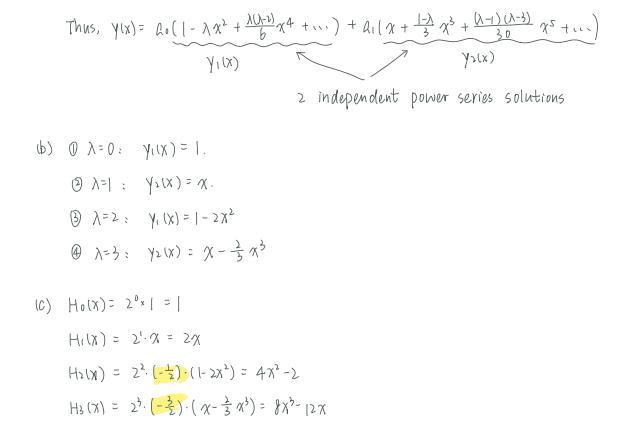 Thus, y(x) = a₀(1 - λx² + λ(λ-2)/6 x⁴ + ...) + a₁(x + (1-λ)/3 x³ + (λ-1)(λ-3)/30 x⁵ + ...)
y₁(x) y₂(x)
2 independent power series solutions
(b) ① λ=0: y₁(x) = 1.
② λ=1: y₂(x) = x.
③ λ=2: y₁(x) = 1-2x²
④ λ=3: y₂(x) = x - 2/3 x³
(c) H₀(x) = 2⁰·1 = 1
H₁(x) = 2¹·x = 2x
H₂(x) = 2²·(-1/2)·(1-2x²) = 4x²-2
H₃(x) = 2³·(-3/2)·(x - 2/3 x³) = 8x³-12x